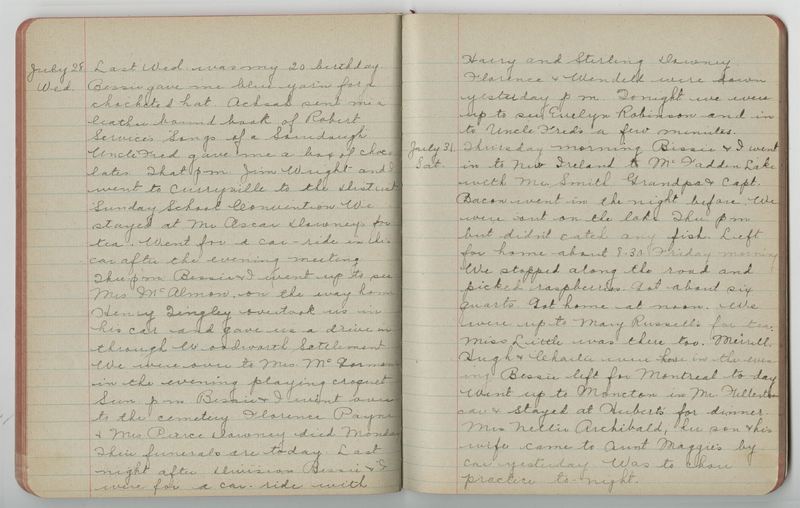 July 28 Last Wed. was my 20 birthday
Wed. Bessie gave me blue yarn for a
chocheted hat. Achsah sent me a
leather bound book of Robert
Services Songs of a Sourdough
Uncle Fred gave me a box of choc
lates. That p.m. Jim Wright and I
went to Curryville to the District
Sunday School Convention. We
stayed at Mr Ascar Downeys for
tea. Went for a car-ride in his
car after the evening meeting.
Thu p.m. Bessie & I went up to see
Mrs McAlmon, on the way home
Henry Tingley overtook us in
his car and gave us a drive on
through Woodworth Settlement
We were over to Mrs. McGorman
in the evening playing croquet
Sun. p.m. Bessie & I went over
to the cemetery Florence Payne
& Mrs Pierce Downey died Monday
Their funerals are to-day. Last
night after division Bessie & I
were for a car-ride with
Harry and Sterling Downey.
Florence & Wendell were down
yesterday p.m. Tonight we were
up to see Evelyn Robinson and in
to Uncle Fred's a few minutes.
July 31. Thursday morning Bessie & I went
Sat. in to New Ireland to McFadden Lake
with Mr Smith. Grandpa & Capt.
Bacon went in the night before. We
were out on the lake Thu p.m.
but didn't catch any fish. Left
for home about 8.30 Friday morning
We stopped along the road and
picked raspberries. Got about six
quarts. Got home at noon. We
were up to Mary Russells for tea.
Miss Little was there too. Merrill
Hugh & Charlie were here in the even
ing. Bessie left for Montreal to-day
Went up to Moncton in Mr Fillerton
car & stayed at Huberts for dinner.
Mrs Nellie Archibald, her son & his
wife came to Aunt Maggie's by
car yesterday. Was to choir
practice to-night.